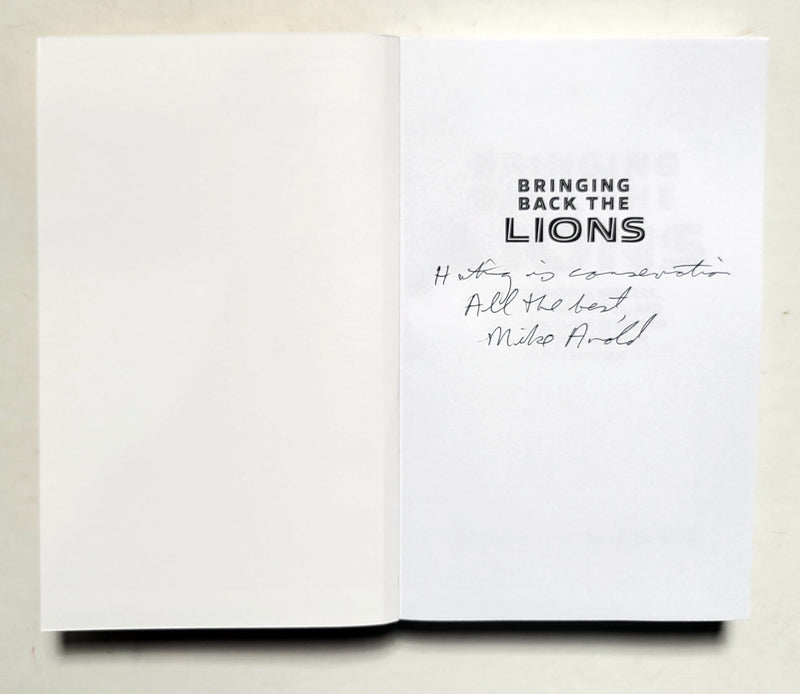 BRINGING
BACK THE
LIONS
Hunting is conservation
All the best,
Mike Arnold